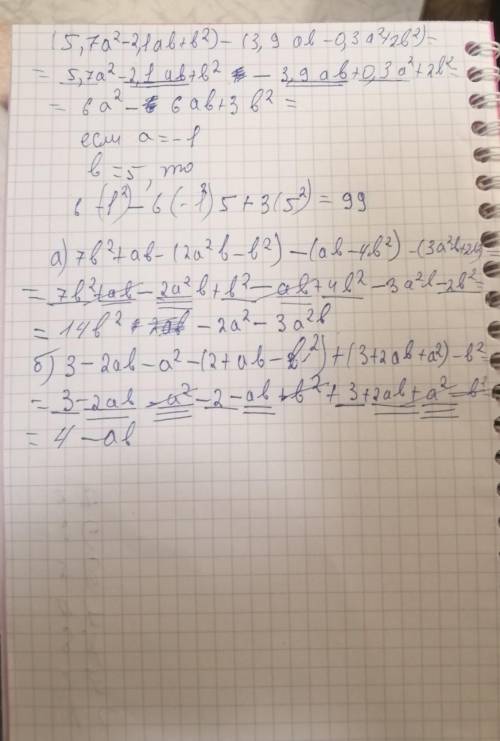 (5,7a²-2,1ab+b²)-(3,9ab-0,3a²+2b²)=
= 5,7a²-2,1ab+b² - 3,9ab+0,3a²+2b²=
= 6a²- 6ab+3b² =
если a=-1
b=5, то
6(-1²)-6(-1)5+3(5²)=99
а) 7b²+ab-(2a²b-b²)-(ab-4b²)-(3a²b+2b²)
= 7b²+ab-2a²b+b²-ab+4b²-3a²b-2b²=
= 14b² -2a²-3a²b
б) 3-2ab-a²-(2+ab-b²)+(3+2ab+a²)-b²=
= 3-2ab-a²-2-ab+b²+3+2ab+a²-b²
= 4-ab